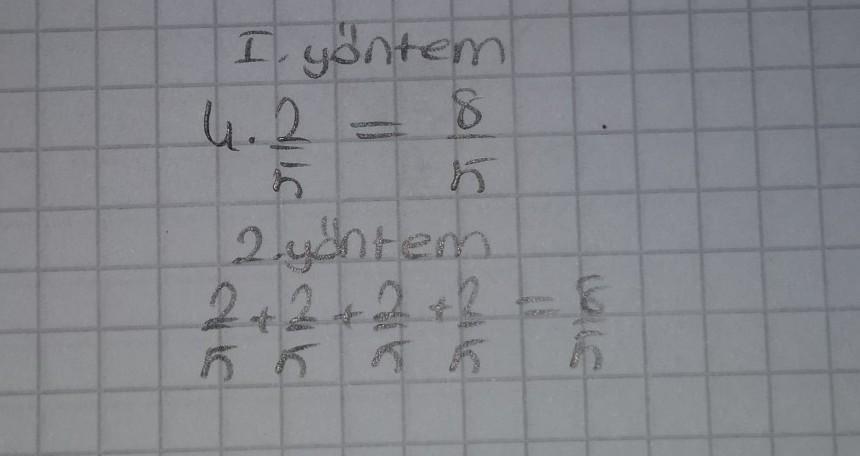 I. yöntem
4. 2/5 = 8/5
2. yöntem
2/5 + 2/5 + 2/5 + 2/5 = 8/5